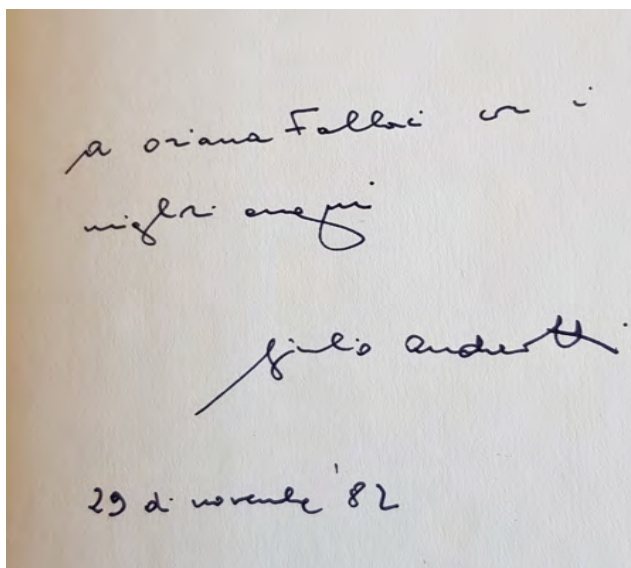 a oriana Fallaci con i
migliori auguri
giulio andreotti
29 di novembre '82